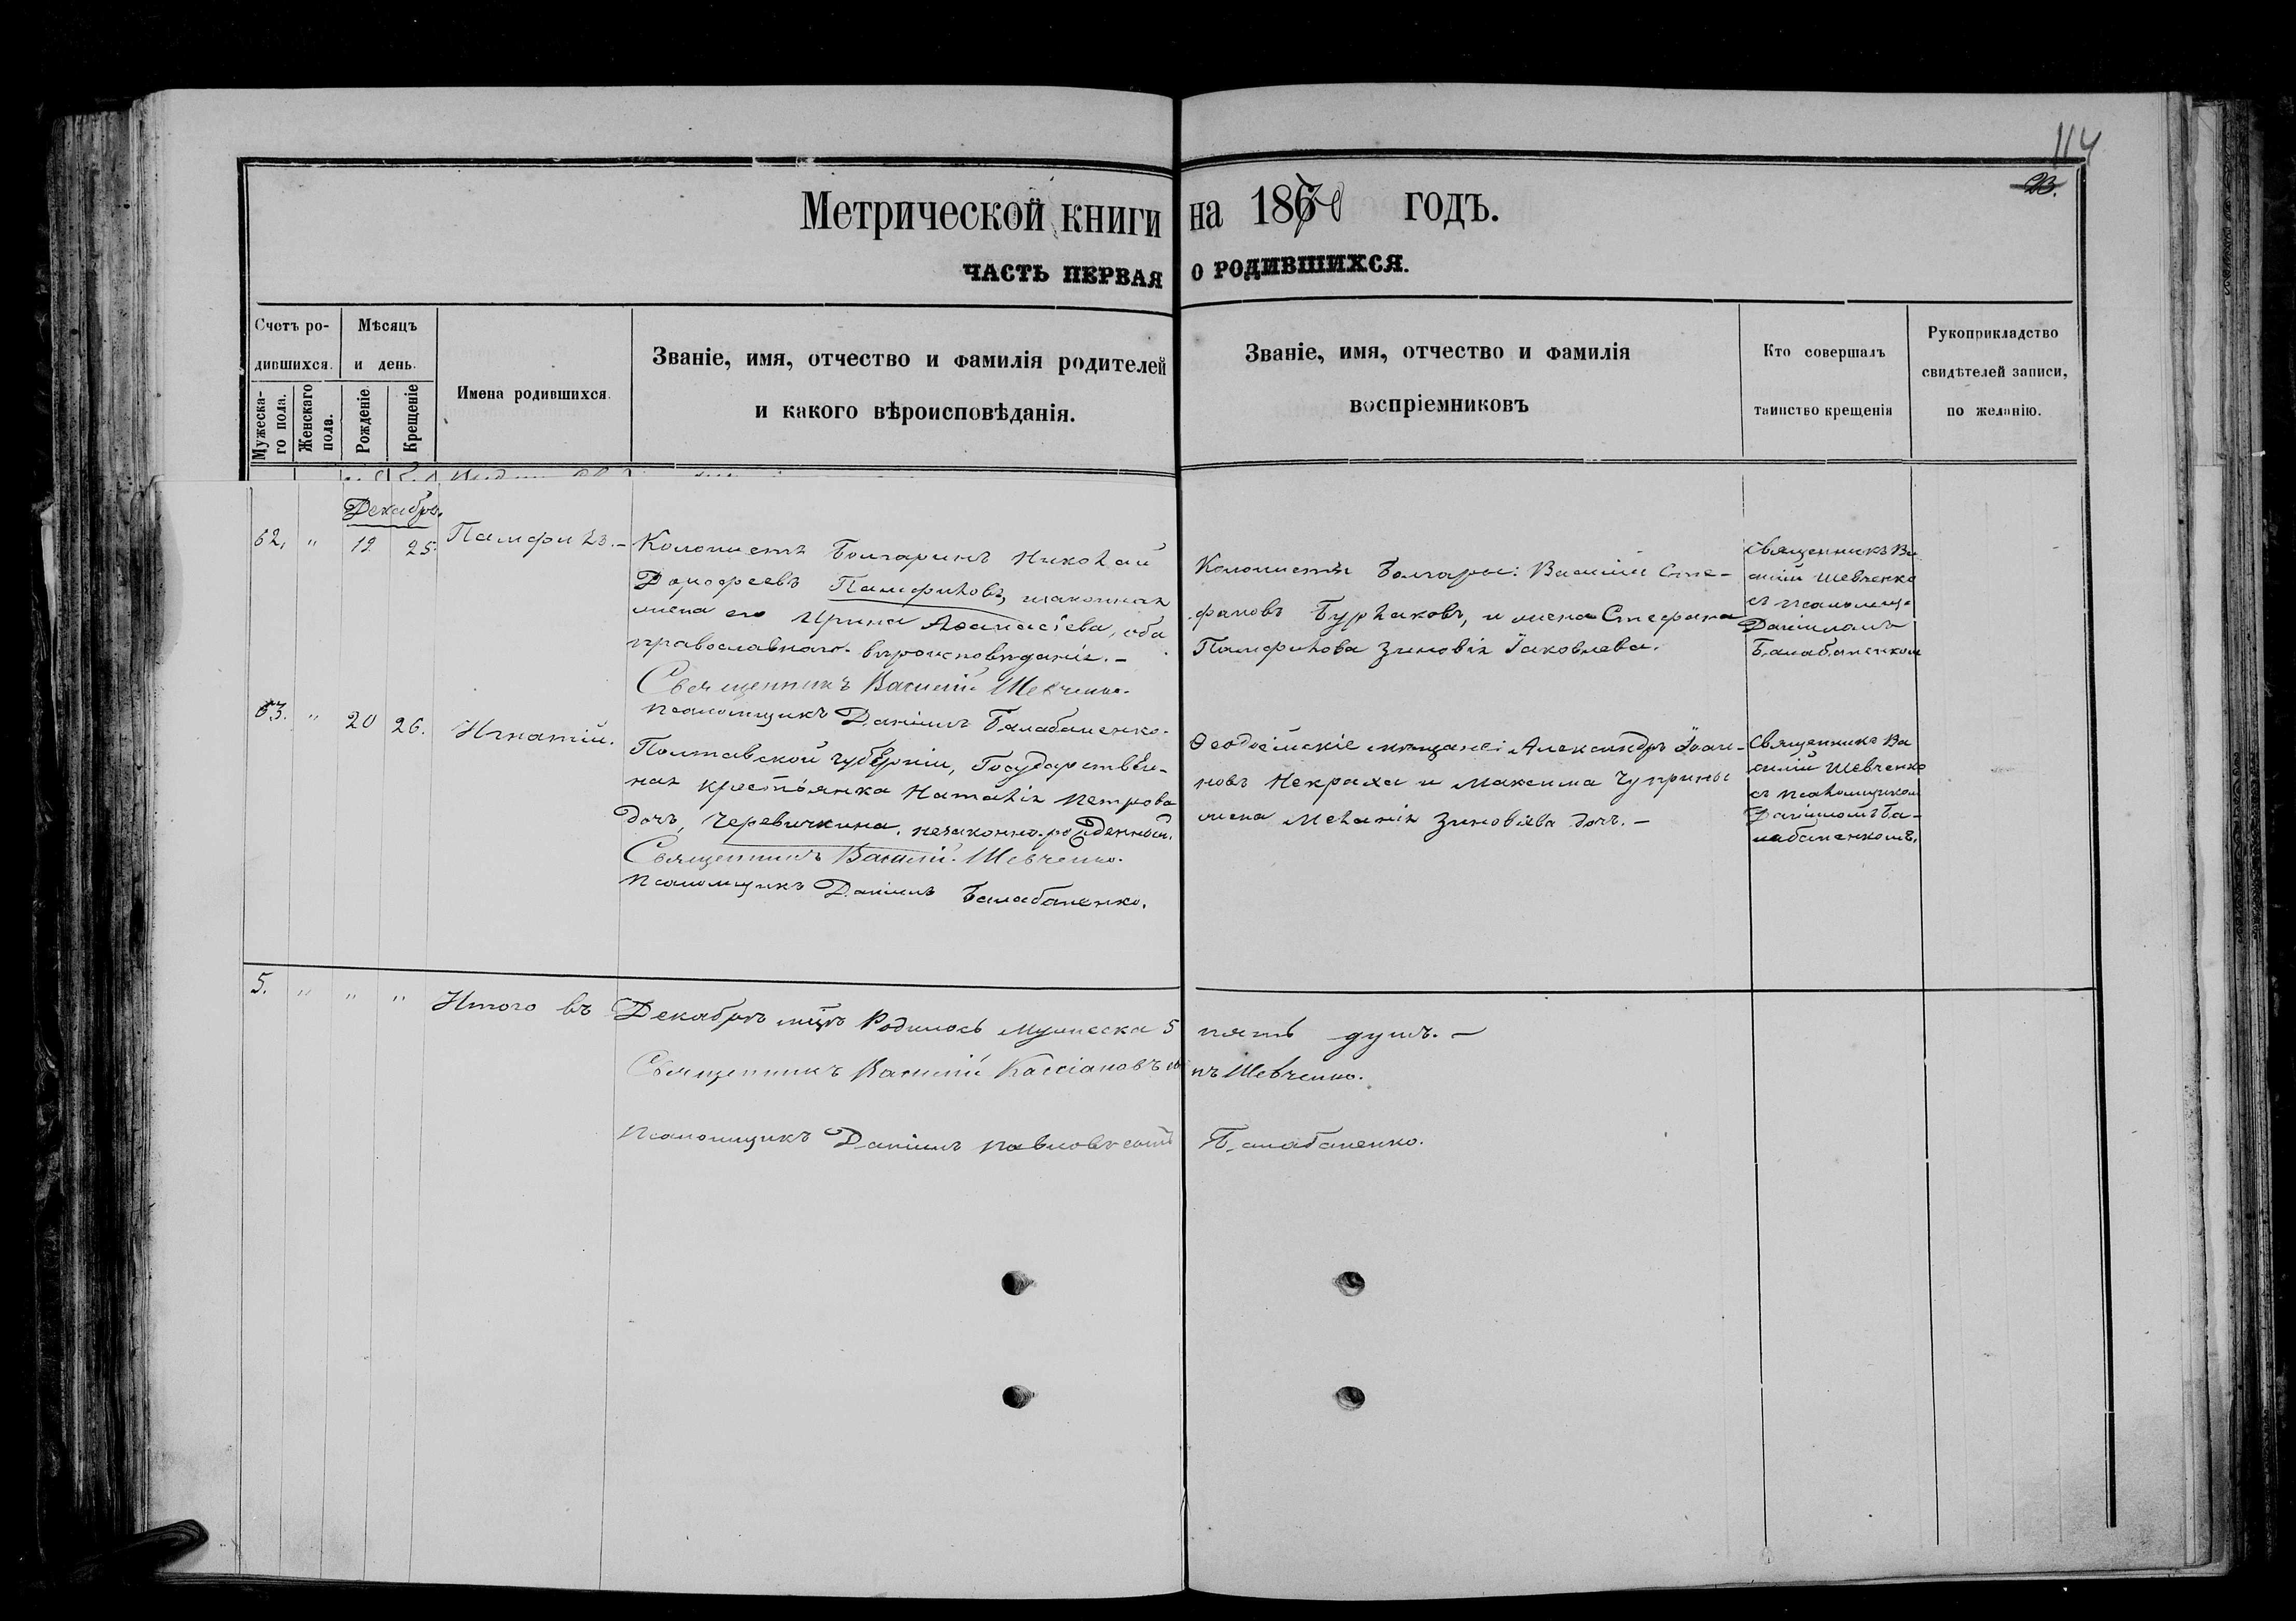 114
23.
Метрической книги на 1870 годъ.
ЧАСТЬ ПЕРВАЯ О РОДИВШИХСЯ.
Счетъ родившихся.
Мужескаго пола.
Женскаго пола.
Мѣсяцъ и день.
Рожденіе.
Крещеніе
Имена родившихся.
Званіе, имя, отчество и фамилія родителей
и какого вѣроисповѣданія.
Званіе, имя, отчество и фамилія
воспріемниковъ
Кто совершалъ
таинство крещенія
Рукоприкладство
свидѣтелей записи,
по желанію.
Декабрь.
62. " 12 25. Памфилъ.
Колонистъ Болгаринъ Николай
Дорофеевъ Памфиловъ, и законная
жена его Ирина Аѳанасіева, оба
православнаго вѣроисповѣданія.–
Священникъ Василій Шевченко.
Псаломщикъ Даніилъ Балабаненко.
Колонисты Болгары: Василій Сте-
фановъ Бурлаковъ, и жена Стефана
Памфилова Зиновія Іаковлева.
Священникъ Ва
силій Шевченко
съ псаломщ.
Даніиломъ
Балабаненком
63. " 20 26. Игнатій.
Полтавской губерніи, Государствен-
ная крестьянка Наталія Петрова
дочь, Черевичкина, незаконно-рожденный.
Священникъ Василій Шевченко.
Псаломщикъ Даніилъ Балабаненко.
Ѳеодосійскіе мѣщане: Александръ Іоан-
новъ Некраха и Максима Чуприны
жена Меланія Зиновіева дочь.–
Священникъ Ва
силій Шевченко
съ псаломщиком
Даніиломъ Ба-
лабаненкомъ.
5. " " " Итого въ Декабрѣ мцѣ Родилось мужеска 5 пять душъ.–
Священникъ Василій Кассіановъ сынъ Шевченко.
Псаломщикъ Даніилъ Павловъ сынъ Балабаненко.